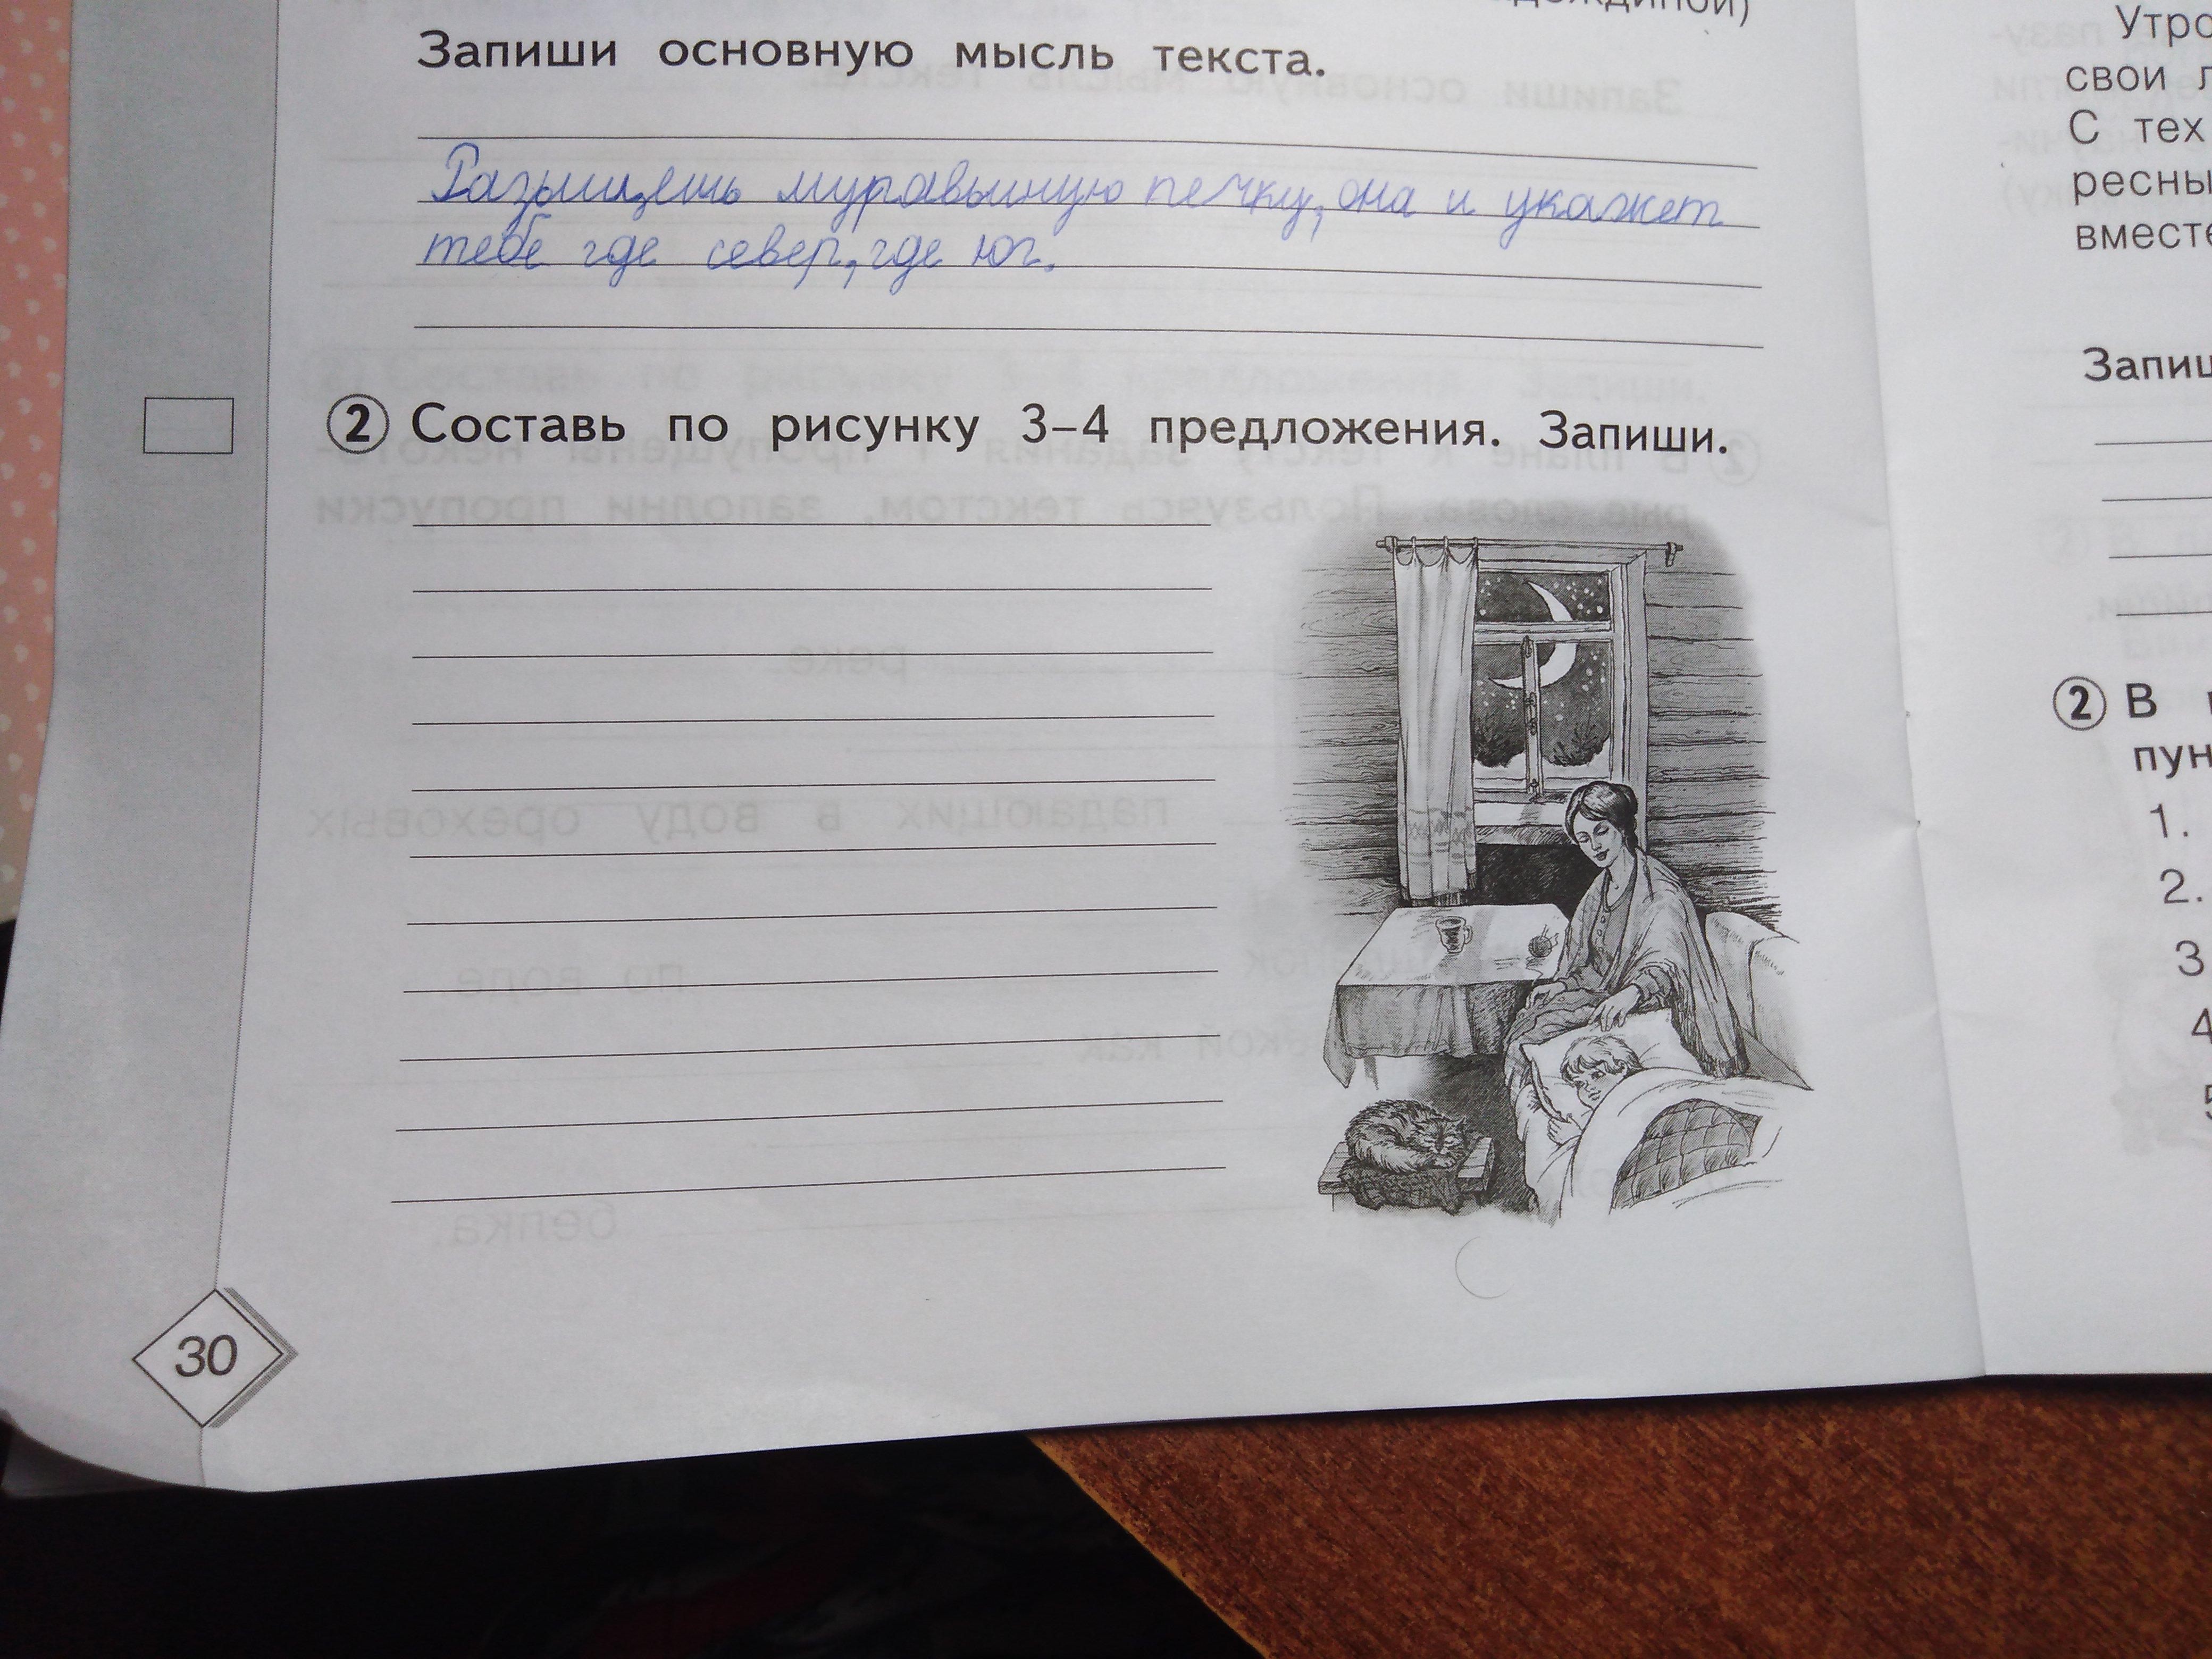 Запиши основную мысль текста.
Разыщешь муравьиную печку, она и укажет
тебе где север, где юг.
2 Составь по рисунку 3–4 предложения. Запиши.
30
Утро
свои
С тех
ресны
вместе
Запиш
2 В
пун
1.
2.
3
4
5